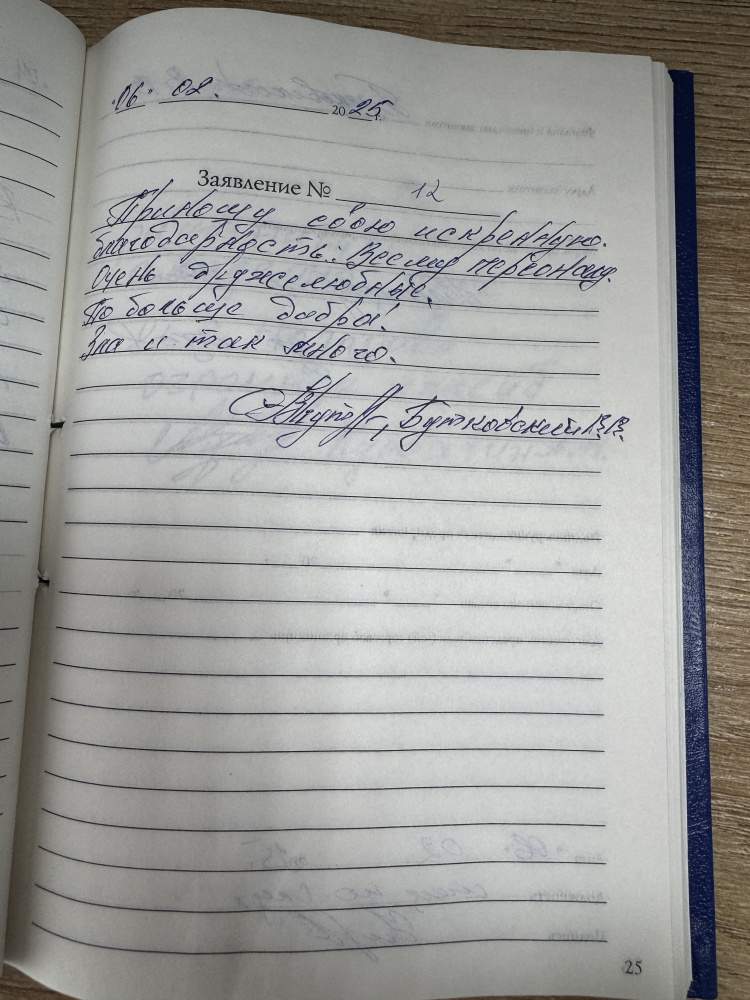 "06" 02. 2025.
Заявление № 12
Приношу свою искреннюю.
благодарность: Всему персоналу.
Очень дружелюбные.
По больше добра!
Зла и так много.
Бутковский В.В.
25